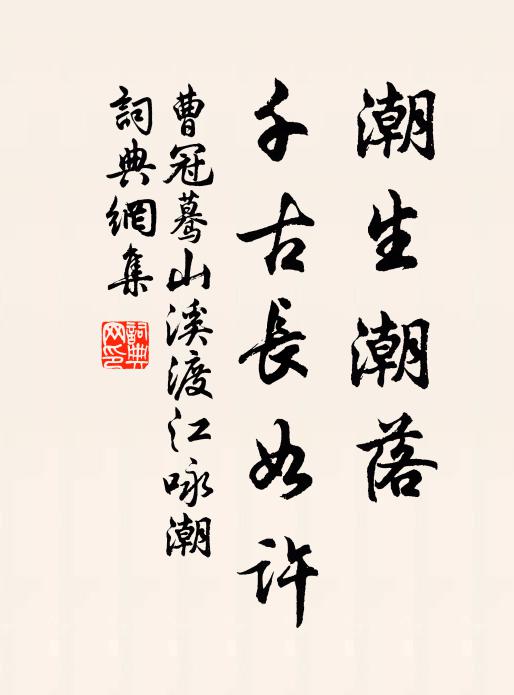 潮生潮落
千古長如許
曹冠驀山溪渡江咏潮
詞典網集
詞典网印